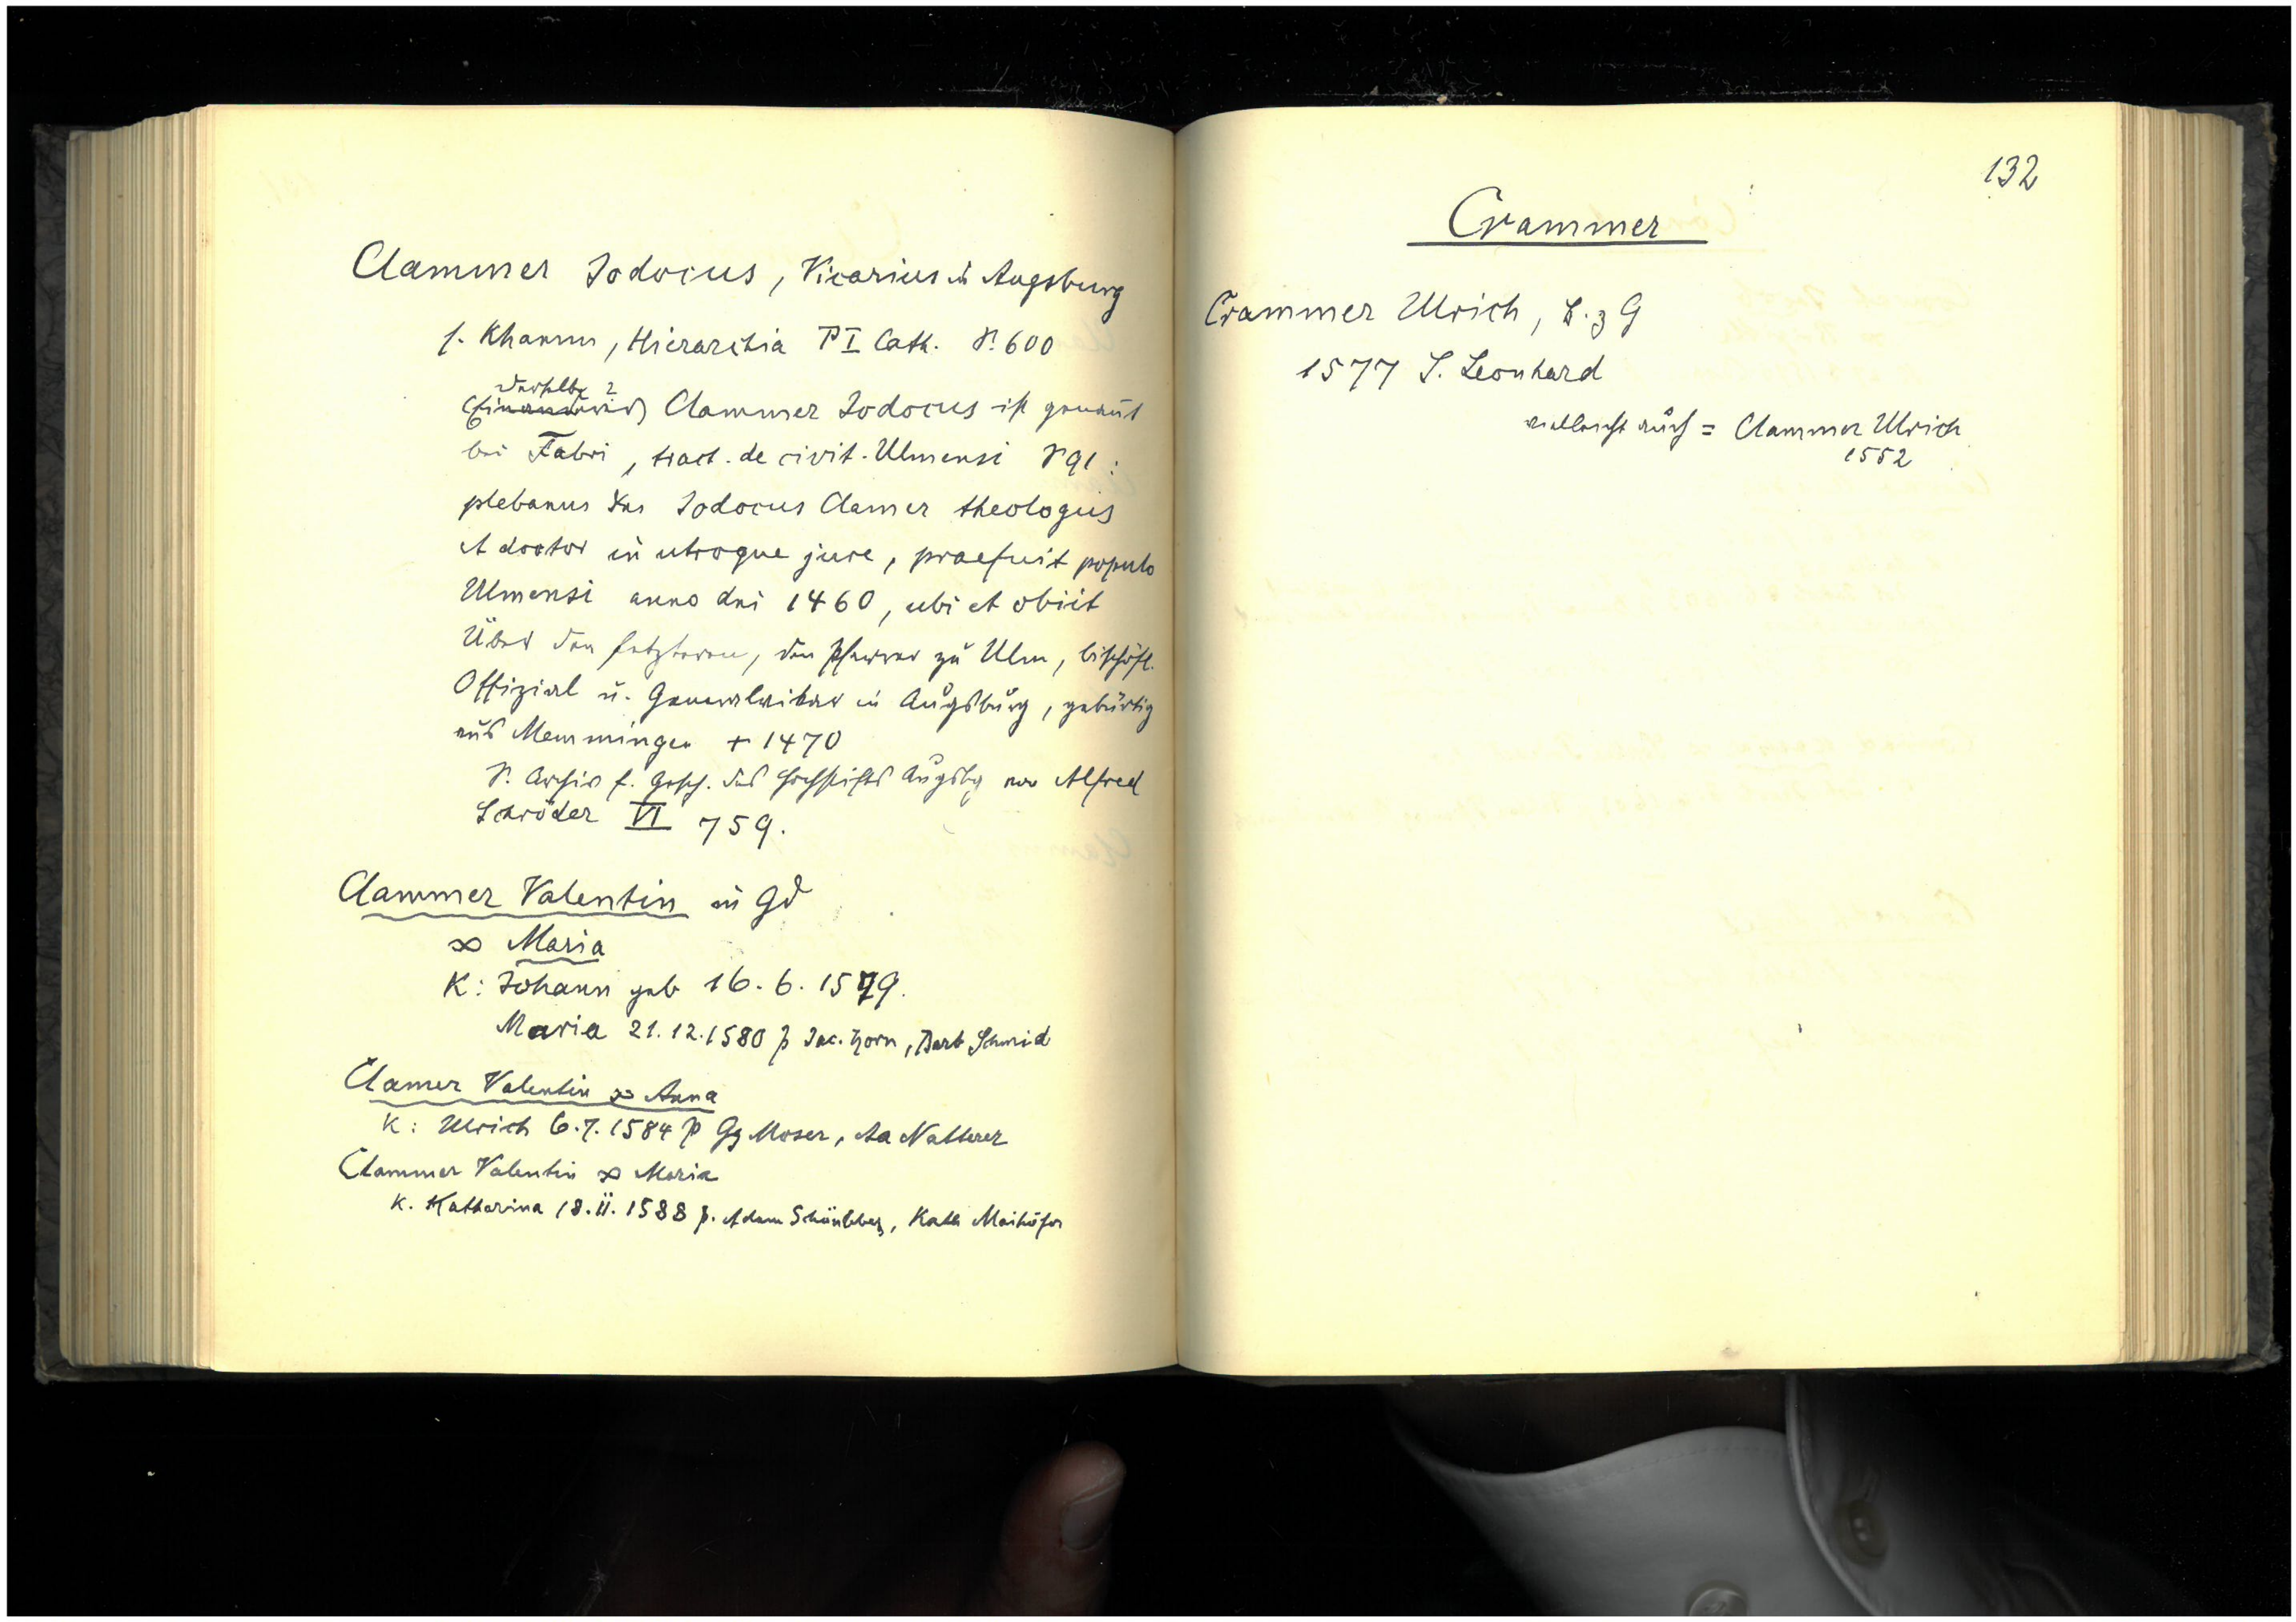 Clammer Jodocus, Vicarius in Augsburg
s. Khamm, Hierarchia P I Cath. S. 600
derselbe ?
Clammer Jodocus ist genannt
bei Fabri, tract. de civit. Ulmensi S 91:
plebanus dns Jodocus Clamer theologus
et doctor in utroque jure, praefuit populo
Ulmensi anno dni 1460, ubi et obiit
Über den letzteren, den Pfarrer zu Ulm, bischöfl.
Offizial u. Generalvikar in Augsburg, gebürtig
aus Memmingen + 1470
S. Archiv f. Gesch. des Hochstifts Augsbg von Alfred
Schröder VI 759.
Clammer Valentin in Gd
∞ Maria
K: Johann geb 16. 6. 1579.
Maria 21.12.1580 p Jac. Horn, Barb Schmid
Clamer Valentin ∞ Anna
K: Ulrich 6.7.1584 p Gg Moser, Aa Natterer
Clammer Valentin ∞ Maria
K. Katharina 18.II.1588 p. Adam, Kath Maihöfer
132
Crammer
Crammer Ulrich, B. z G
1577 S. Leonhard
vielleicht auch = Clammer Ulrich
1552